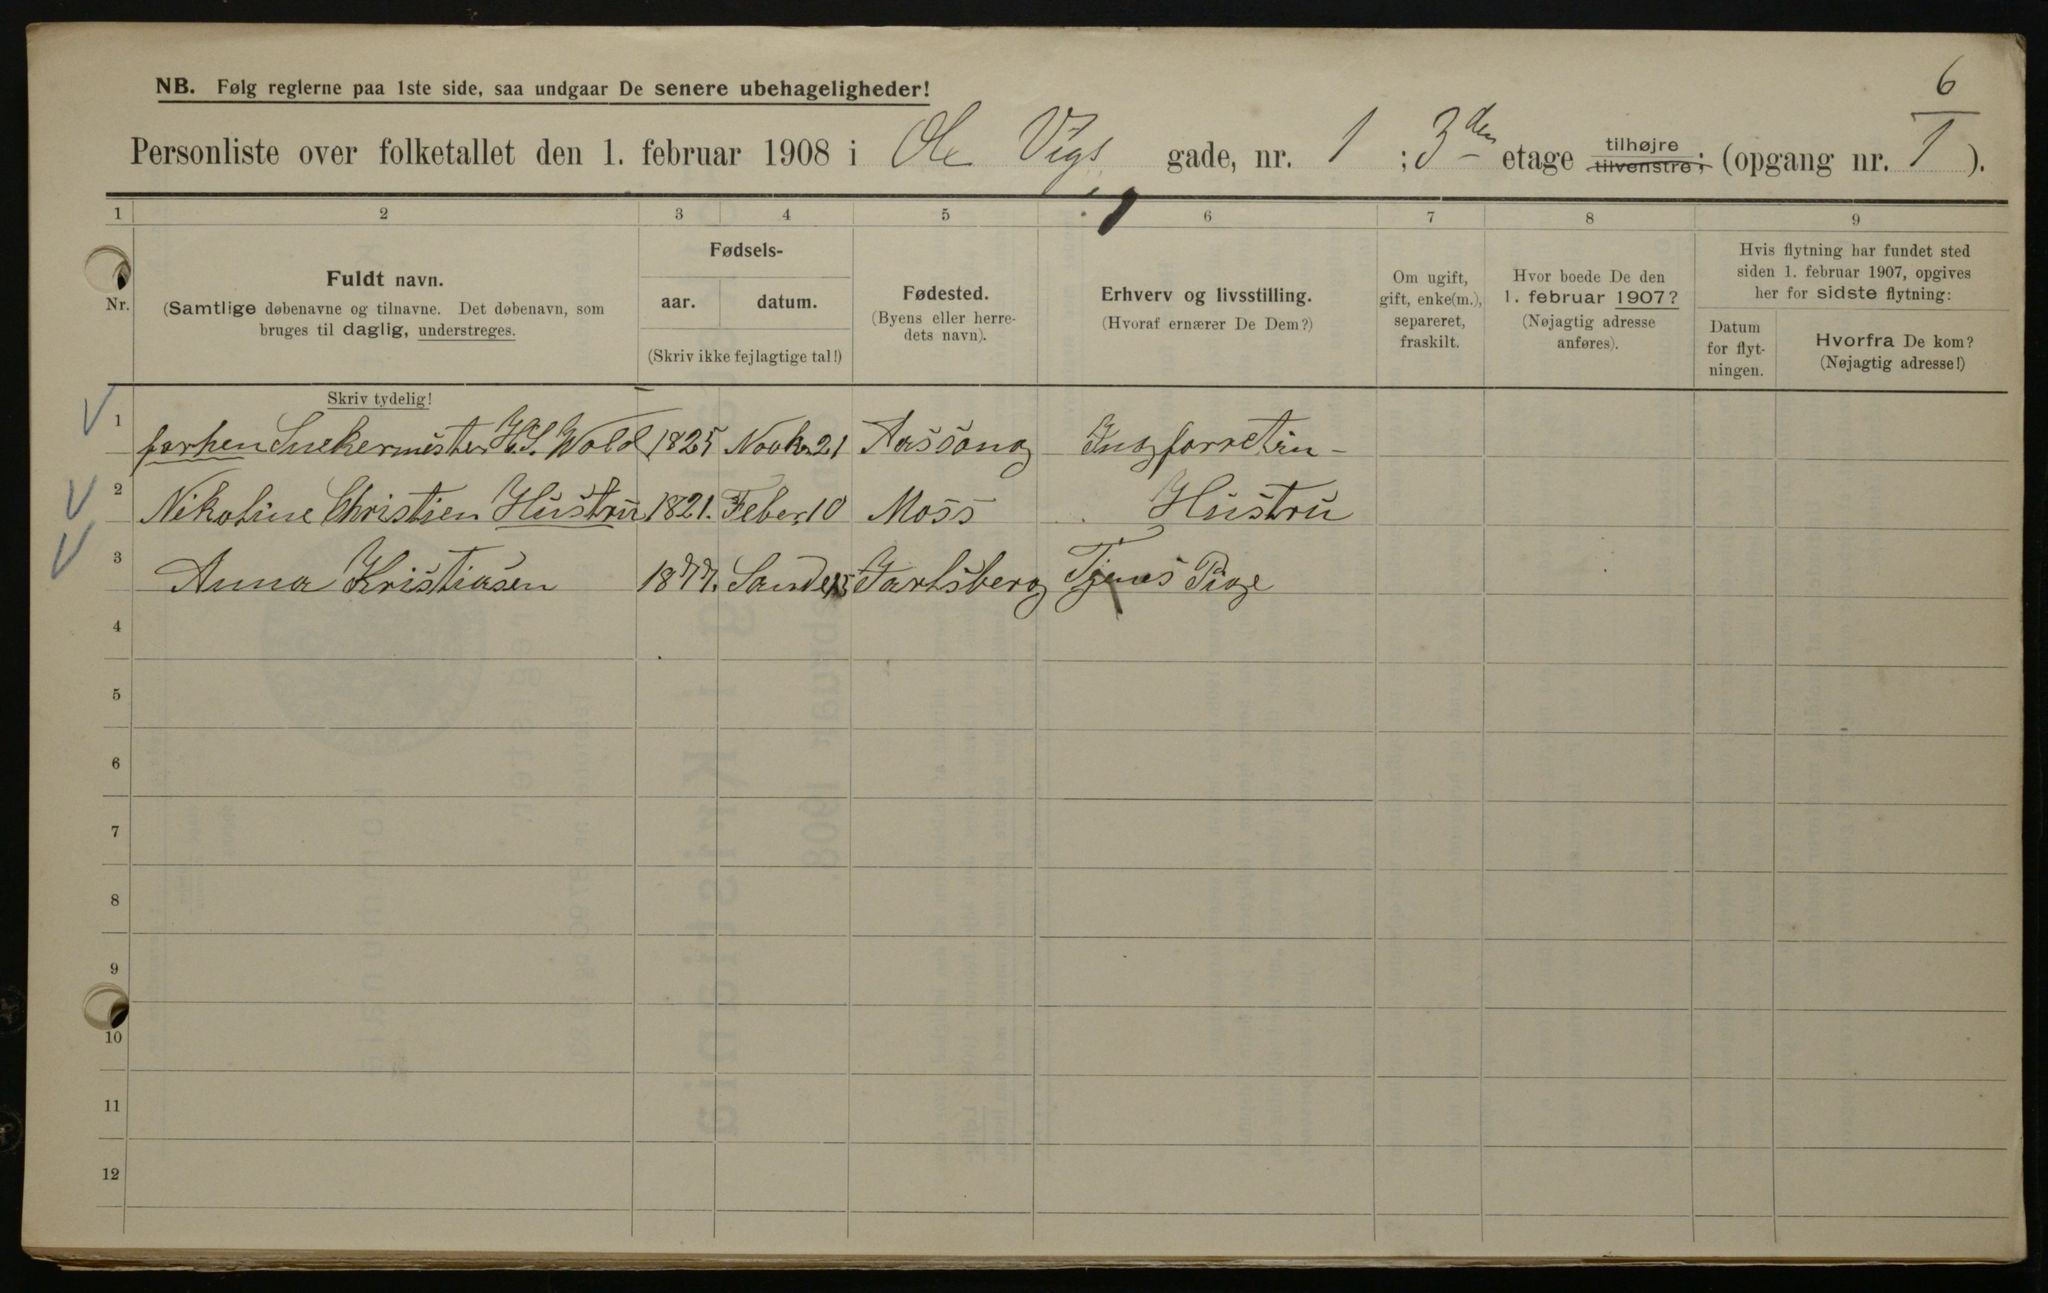 6
NB. Følg reglerne paa 1ste side, saa undgaar De senere ubehageligheder!
Personliste over folketallet den 1. februar 1908 i Ole Vigs gade, nr. 1 ; 3den etage tilhøjre tilvenstre; (opgang nr. 1 ).
1 2 3 4 5 6 7 8 9
Nr.
Fuldt navn.
(Samtlige døbenavne og tilnavne. Det døbenavn, som
bruges til daglig, understreges.
Skriv tydelig!
Fødsels-
aar. datum.
(Skriv ikke fejlagtige tal!)
Fødested.
(Byens eller herre-
dets navn).
Erhverv og livsstilling.
(Hvoraf ernærer De Dem?)
Om ugift,
gift, enke(m.),
separeret,
fraskilt.
Hvor boede De den
1. februar 1907?
(Nøjagtig adresse
anføres).
Hvis flytning har fundet sted
siden 1. februar 1907, opgives
her for sidste flytning:
Datum
for flyt-
ningen.
Hvorfra De kom?
(Nøjagtig adresse!)
1 forhen Snekermester H. S. Wold 1825 21
2 Nikoline Christien Hustru 1821. Feber 10 Moss Hustru
3 Anna Kristiasen 1877. Sande Jarlsberg Tjenes Pige
4
5
6
7
8
9
10
11
12